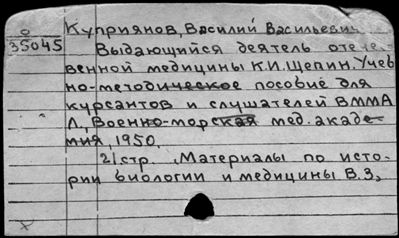 О
35045
Куприянов, Василий Васильевич
Выдающийся деятель отече-
венной медицины К.И. Щепин. Учеб
но-методическое пособие для
курсантов и слушателей ВММА
Л., Военно-морская мед. акаде-
мия, 1950.
21 стр. Материалы по исто-
рии биологии и медицины В.3.
х